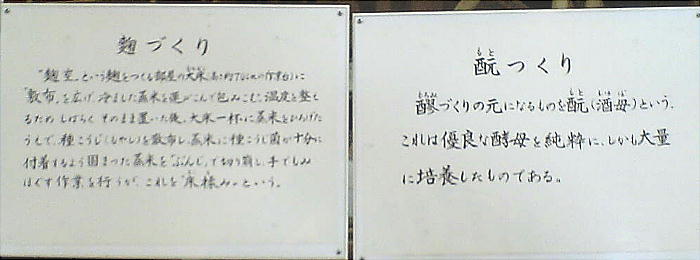 麹づくり
"麹室"という麹をつくる部屋の大床(高さ約70cmの作業台)に
"敷布"を広げ、冷ました蒸米を運びこんで包みこむ。温度を整え
るため しばらく そのまま置いた後、大床一杯に蒸米をひろげた
うえで、種こうじ(もやし)を散布し、蒸米に種こうじ菌が十分に
付着するよう固まった蒸米を"ぶんじ"で切り崩し、手でもみ
ほぐす作業を行うが、これを"床揉み"という。
酛つくり
もと
醪づくりの元になるものを酛(酒母)という。
もろみ
もと
しゅぼ
これは優良な酵母を純粋に、しかも大量
に培養したものである。